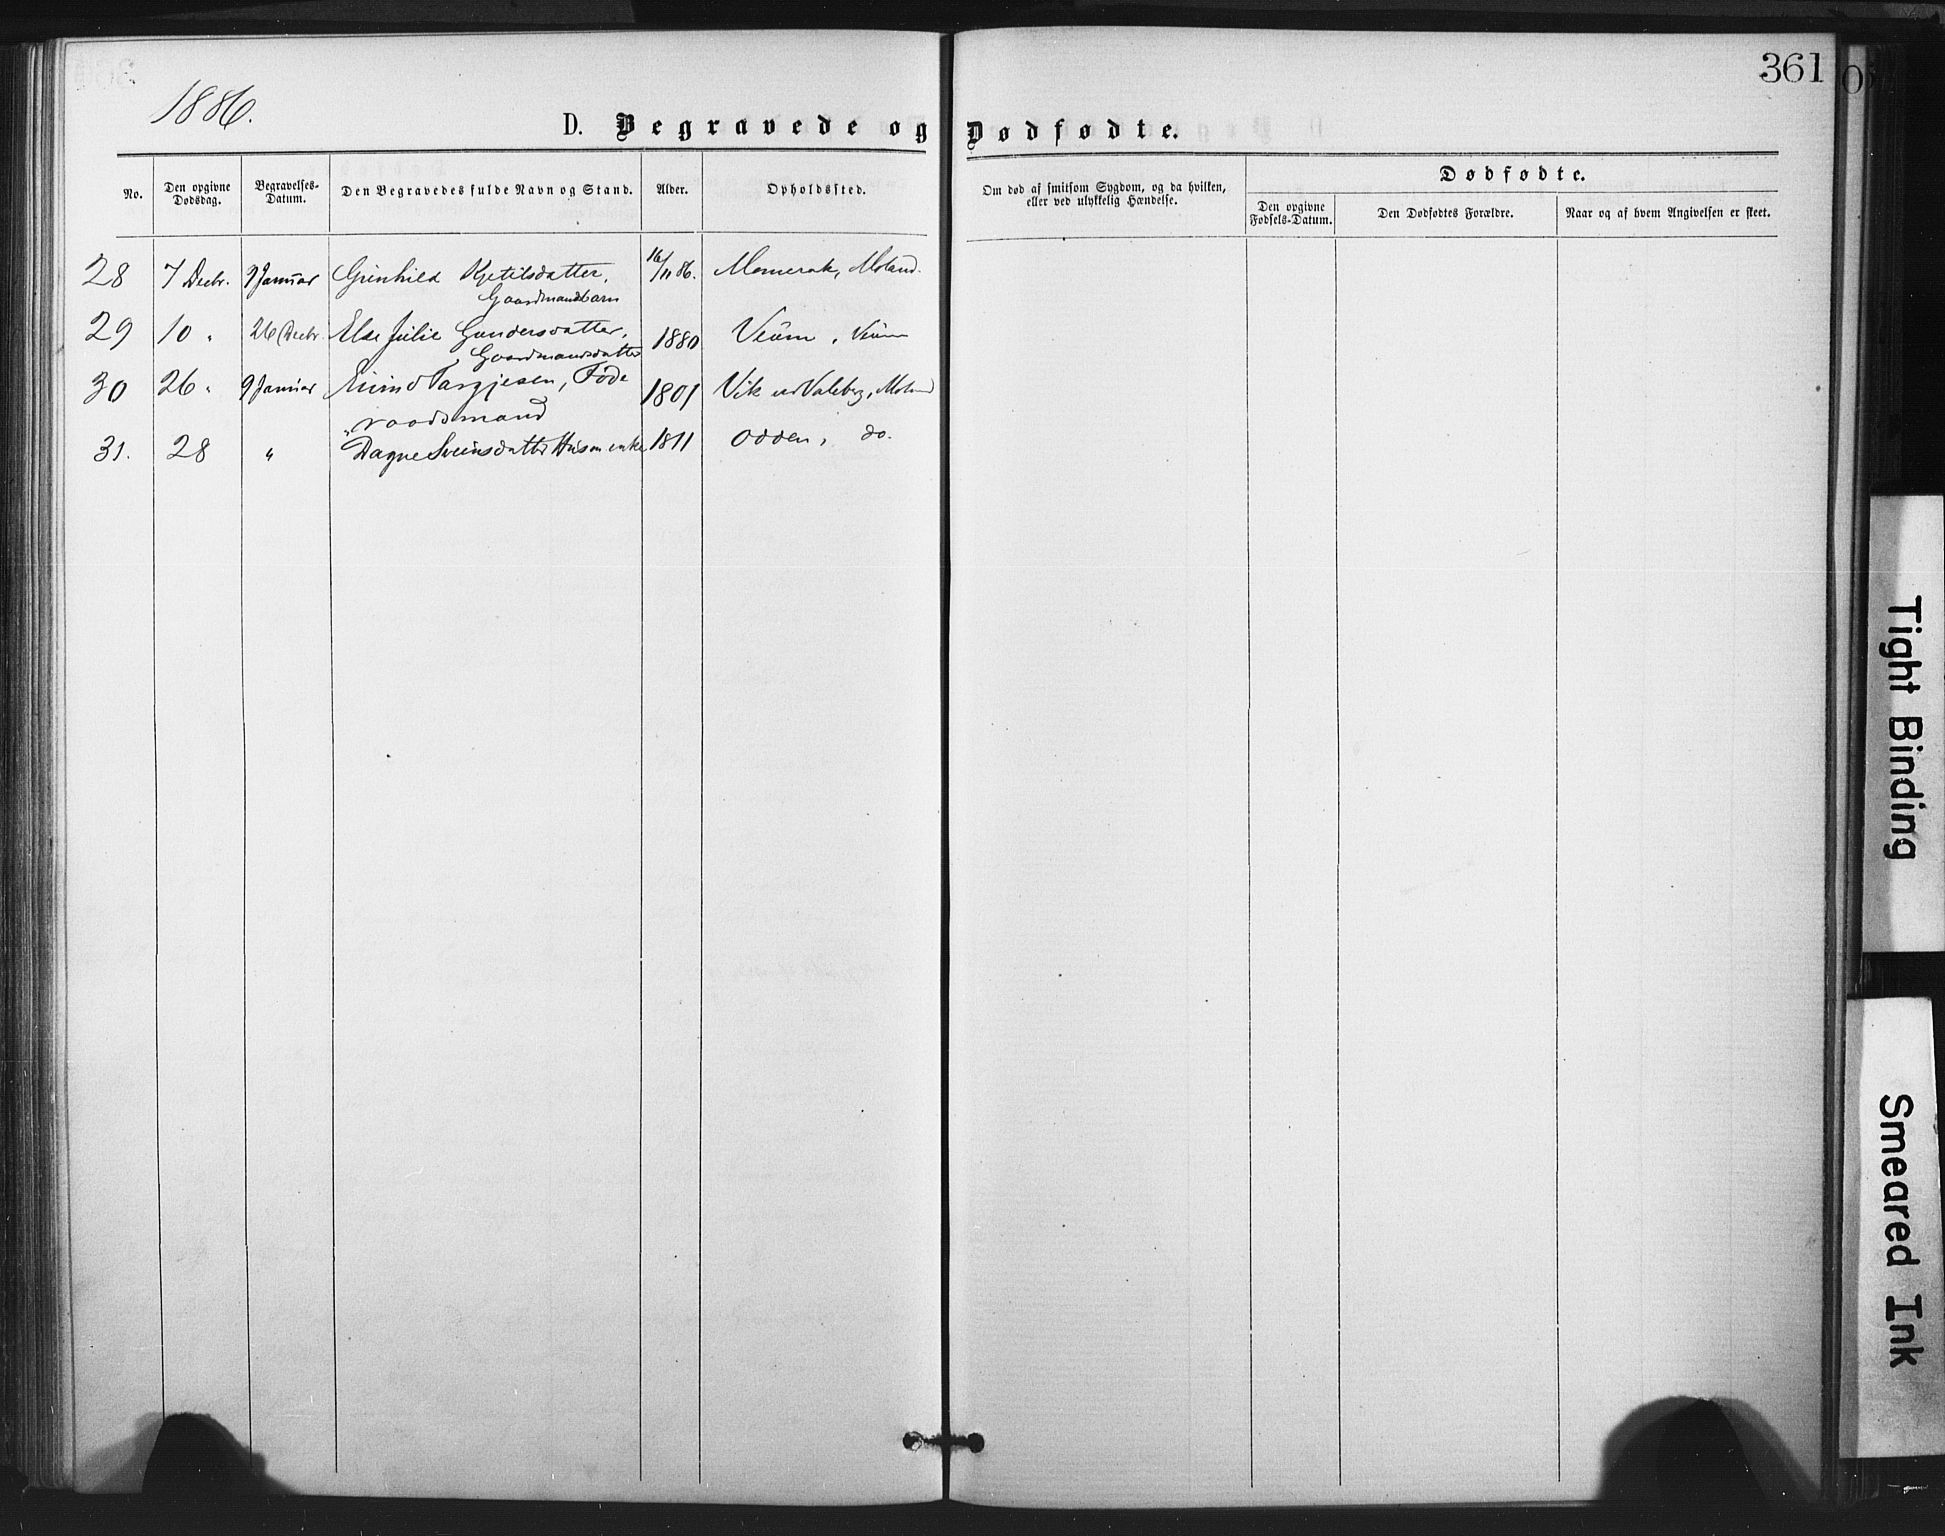 1886.
361
D. Begravede og Dødfødte.
No.
Den opgivne Dødsdag.
Begravelses-Datum.
Den Begravedes fulde Navn og Stand.
Alder.
Opholdssted.
Om død af smitsom Sygdom, og da hvilken, eller ved ulykkelig Hændelse.
Dødfødte.
Den opgivne Fødsels-Datum.
Den Dødfødtes Forældre.
Naar og af hvem Angivelsen er skeet.
28 7 Decbr. 9 Januar Gunhild Kjetilsdatter, 16/11 86. Momerak, Moland.
Gaardmandsbarn
29 10 " 26 Decbr. Else Julie Gundersdatter, 1880 Veum, Veum
Gaardmandsdatter
30 26 " 9 Januar Eivind Targjesen, Føde 1801 Vik Moland
raadsmand
31. 28 " Dagne Sveinsdatter Husm enke 1811 Odden, do.
Tight Binding
Smeared Ink